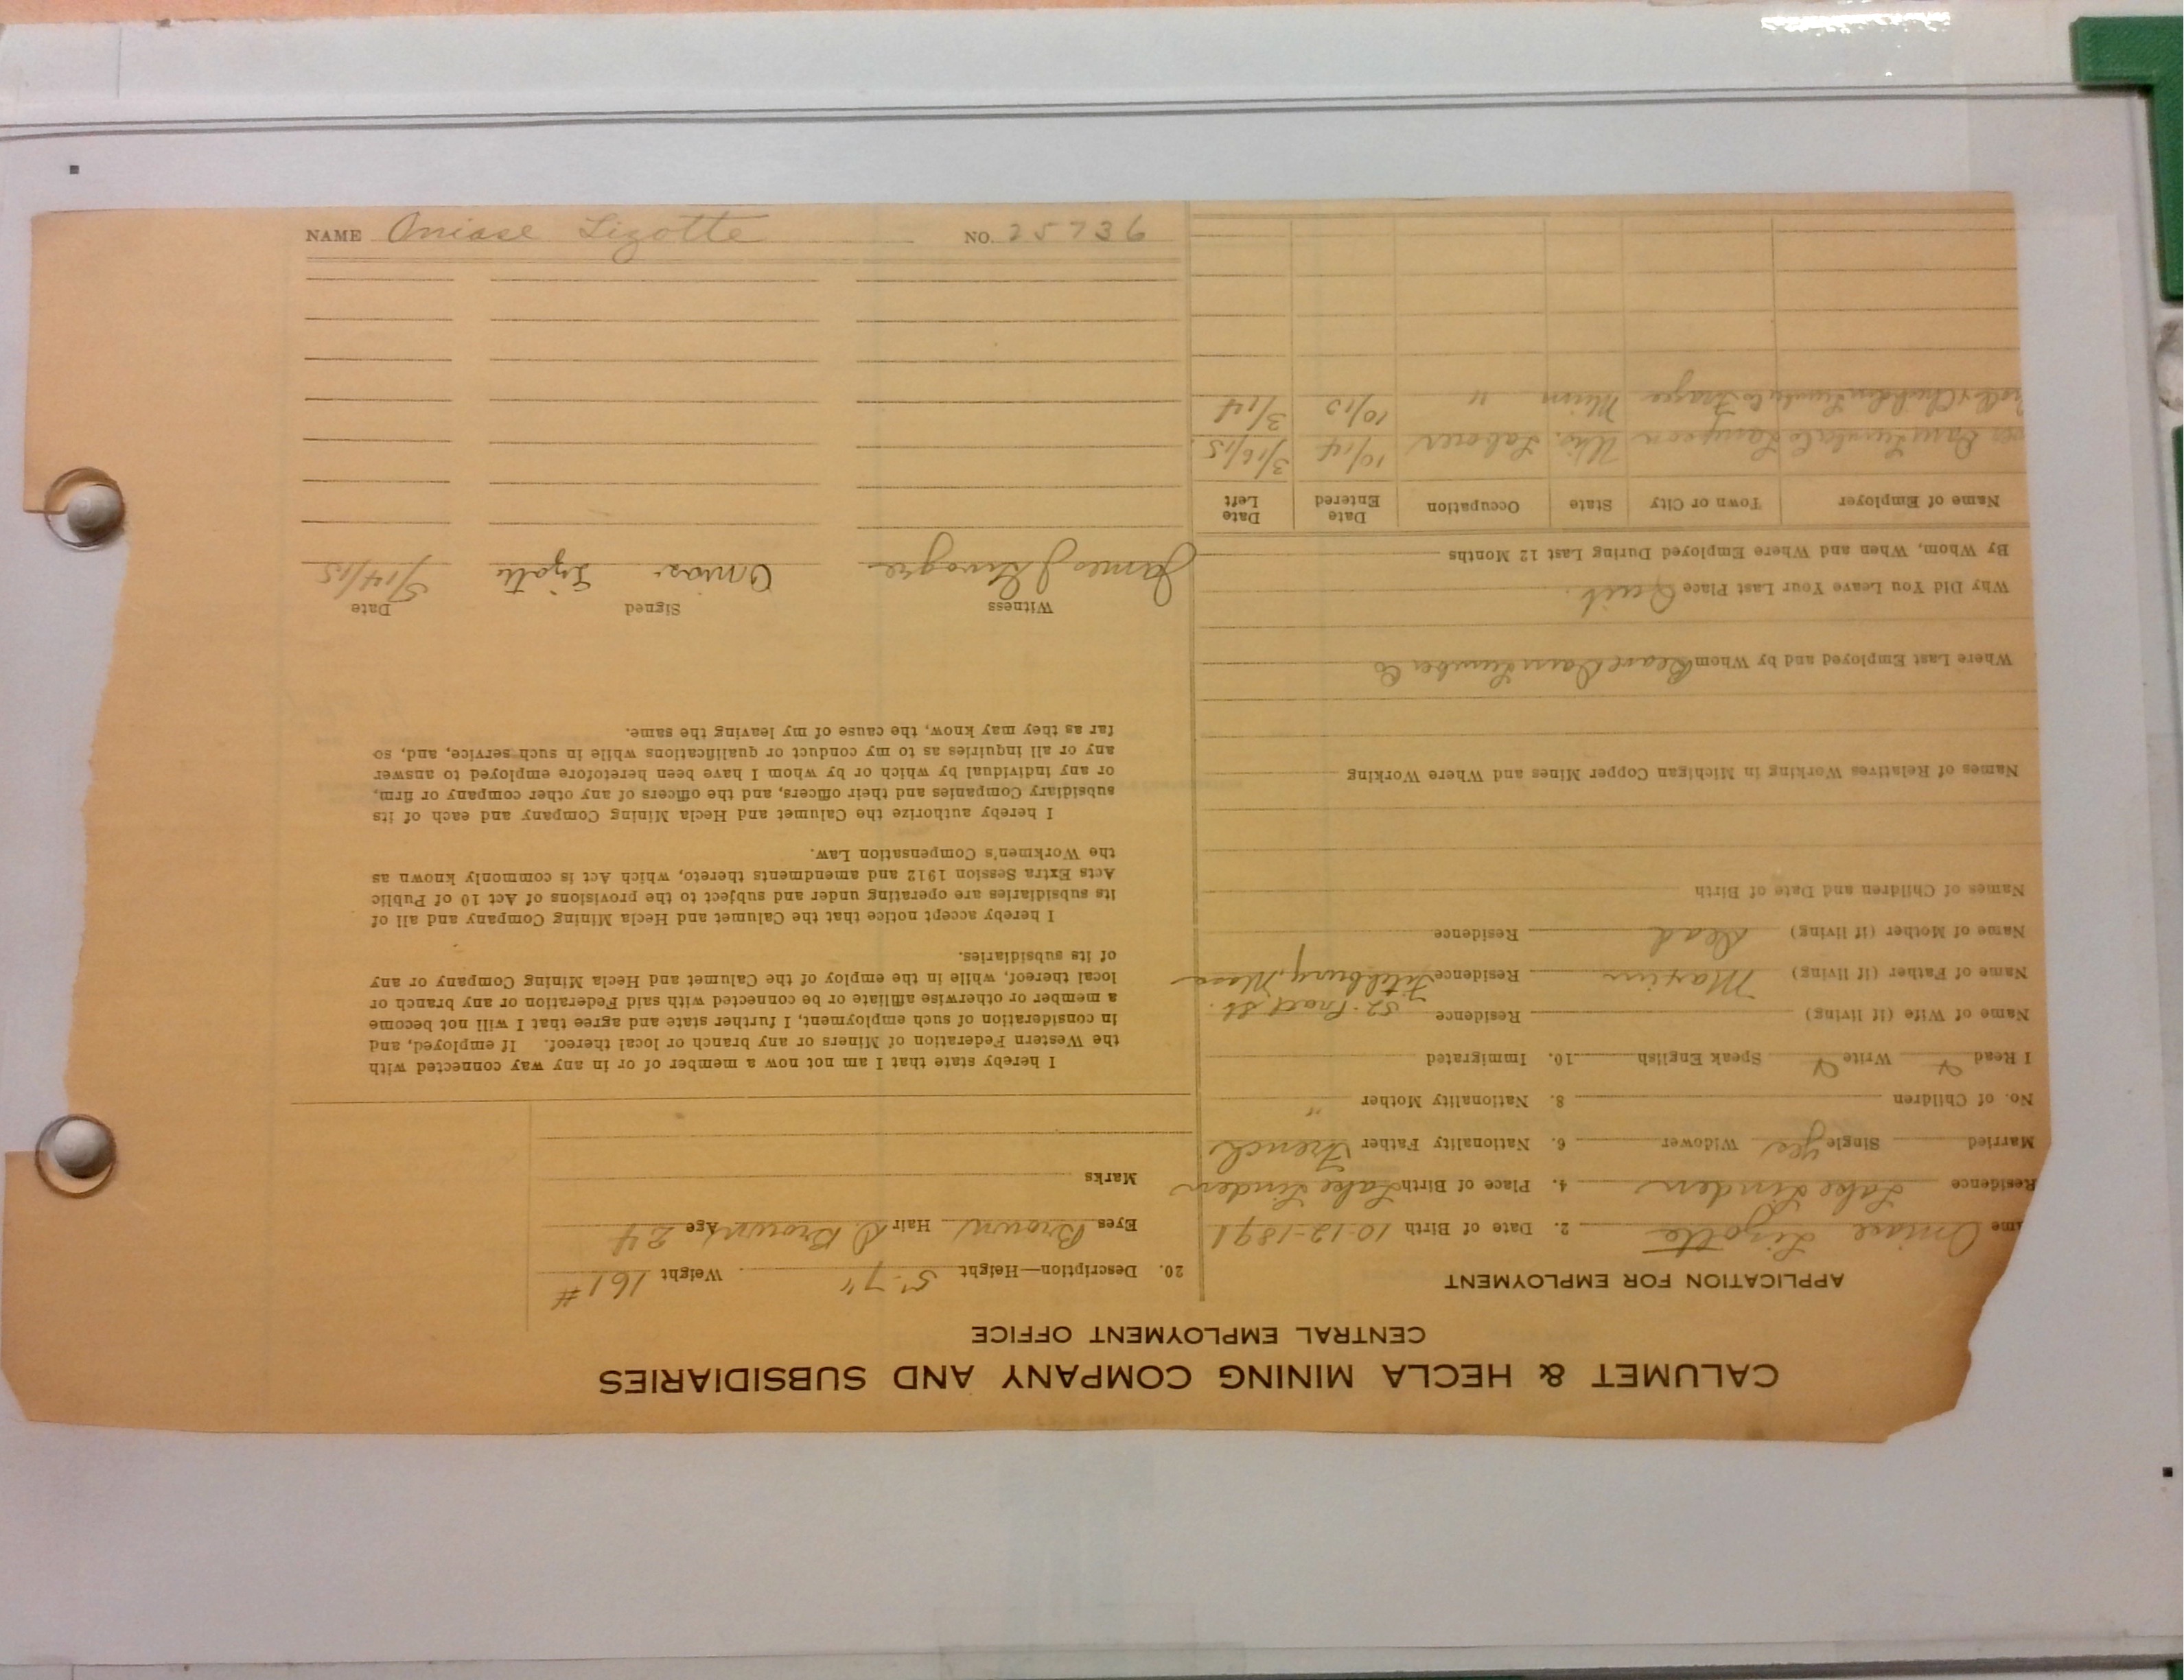 CALUMET & HECLA MINING COMPANY AND SUBSIDIARIES
CENTRAL EMPLOYMENT OFFICE
APPLICATION FOR EMPLOYMENT
ame Oniase Lizotte 2. Date of Birth 10-12-1891
Residence Lake Linden 4. Place of Birth Lake Linden
Married Single Yes Widower 6. Nationality Father French
No. of Children 8. Nationality Mother "
I Read Write Speak English 10. Immigrated
Name of Wife (if living) Residence 52 St.
Name of Father (if living) Residence Fitchburg, Mass
Name of Mother (if living) Dead Residence
Names of Children and Date of Birth
Names of Relatives Working in Michigan Copper Mines and Where Working
Where Last Employed and by Whom Beaver Dam Lumber Co
Why Did You Leave Your Last Place Quit.
By Whom, When and Where Employed During Last 12 Months
Name of Employer Town or City State Occupation Date Entered Date Left
Dam Lumber Co Wis. Laborer 10/14 3/16/15
Lumber Co Frazee Minn " 10/13 3/14
20. Description—Height 5' 7" Weight 161 #
Eyes Brown Hair D. Brown Age 24
Marks
I hereby state that I am not now a member of or in any way connected with
the Western Federation of Miners or any branch or local thereof. If employed, and
in consideration of such employment, I further state and agree that I will not become
a member or otherwise affiliate or be connected with said Federation or any branch or
local thereof, while in the employ of the Calumet and Hecla Mining Company or any
of its subsidiaries.
I hereby accept notice that the Calumet and Hecla Mining Company and all of
its subsidiaries are operating under and subject to the provisions of Act 10 of Public
Acts Extra Session 1912 and amendments thereto, which Act is commonly known as
the Workmen's Compensation Law.
I hereby authorize the Calumet and Hecla Mining Company and each of its
subsidiary Companies and their officers, and the officers of any other company or firm,
or any individual by which or by whom I have been heretofore employed to answer
any or all inquiries as to my conduct or qualifications while in such service, and, so
far as they may know, the cause of my leaving the same.
Witness Signed Date
James J Onias. 5/14/15
NAME Oniase Lizotte NO. 25736